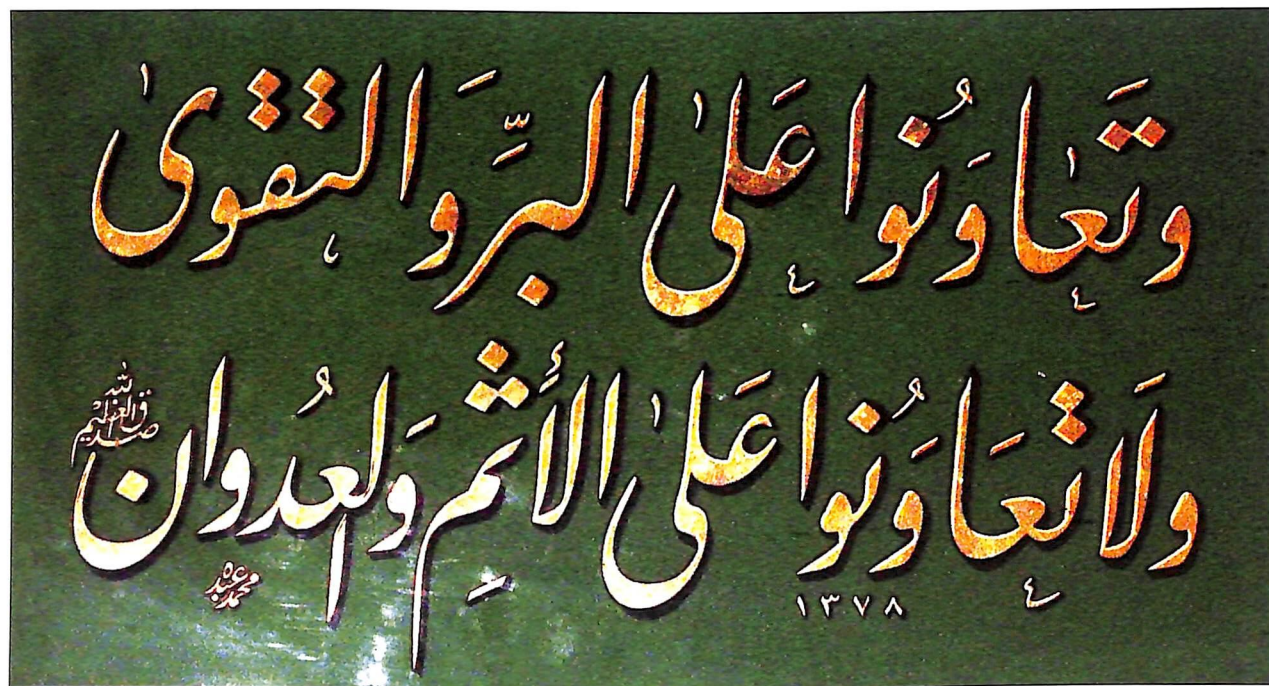 وَتَعَاوَنُوا عَلَى البِرِّ وَالتقوى
وَلَا تَعَاوَنُوا عَلَى الأَثمِ وَالعُدوان
صدق الله العظيم
١٣٧٨
محمد عبده